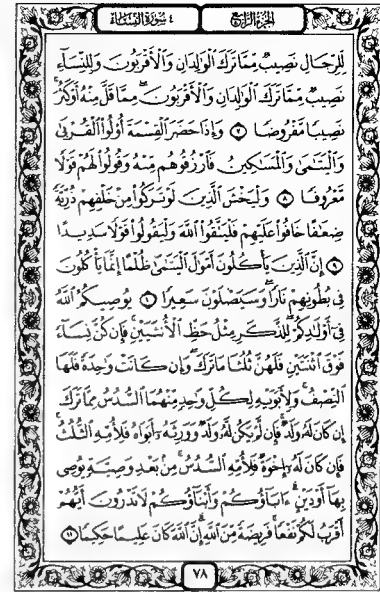 الجزء الرابع
٤ سورة النساء
لِّلرِّجَالِ نَصِيبٌ مِّمَّا تَرَكَ ٱلْوَٰلِدَانِ وَٱلْأَقْرَبُونَ وَلِلنِّسَآءِ
نَصِيبٌ مِّمَّا تَرَكَ ٱلْوَٰلِدَانِ وَٱلْأَقْرَبُونَ مِمَّا قَلَّ مِنْهُ أَوْ كَثُرَ ۚ
نَصِيبًا مَّفْرُوضًا ٧ وَإِذَا حَضَرَ ٱلْقِسْمَةَ أُو۟لُوا۟ ٱلْقُرْبَىٰ
وَٱلْيَتَٰمَىٰ وَٱلْمَسَٰكِينُ فَٱرْزُقُوهُم مِّنْهُ وَقُولُوا۟ لَهُمْ قَوْلًا
مَّعْرُوفًا ٨ وَلْيَخْشَ ٱلَّذِينَ لَوْ تَرَكُوا۟ مِنْ خَلْفِهِمْ ذُرِّيَّةً
ضِعَٰفًا خَافُوا۟ عَلَيْهِمْ فَلْيَتَّقُوا۟ ٱللَّهَ وَلْيَقُولُوا۟ قَوْلًا سَدِيدًا
٩ إِنَّ ٱلَّذِينَ يَأْكُلُونَ أَمْوَٰلَ ٱلْيَتَٰمَىٰ ظُلْمًا إِنَّمَا يَأْكُلُونَ
فِى بُطُونِهِمْ نَارًا ۖ وَسَيَصْلَوْنَ سَعِيرًا ١٠ يُوصِيكُمُ ٱللَّهُ
فِىٓ أَوْلَٰدِكُمْ ۖ لِلذَّكَرِ مِثْلُ حَظِّ ٱلْأُنثَيَيْنِ ۚ فَإِن كُنَّ نِسَآءً
فَوْقَ ٱثْنَتَيْنِ فَلَهُنَّ ثُلُثَا مَا تَرَكَ ۖ وَإِن كَانَتْ وَٰحِدَةً فَلَهَا
ٱلنِّصْفُ ۚ وَلِأَبَوَيْهِ لِكُلِّ وَٰحِدٍ مِّنْهُمَا ٱلسُّدُسُ مِمَّا تَرَكَ
إِن كَانَ لَهُۥ وَلَدٌ ۚ فَإِن لَّمْ يَكُن لَّهُۥ وَلَدٌ وَوَرِثَهُۥٓ أَبَوَاهُ فَلِأُمِّهِ ٱلثُّلُثُ ۚ
فَإِن كَانَ لَهُۥٓ إِخْوَةٌ فَلِأُمِّهِ ٱلسُّدُسُ ۚ مِنۢ بَعْدِ وَصِيَّةٍ يُوصِى
بِهَآ أَوْ دَيْنٍ ۗ ءَابَآؤُكُمْ وَأَبْنَآؤُكُمْ لَا تَدْرُونَ أَيُّهُمْ
أَقْرَبُ لَكُمْ نَفْعًا ۚ فَرِيضَةً مِّنَ ٱللَّهِ ۗ إِنَّ ٱللَّهَ كَانَ عَلِيمًا حَكِيمًا ١١
٧٨